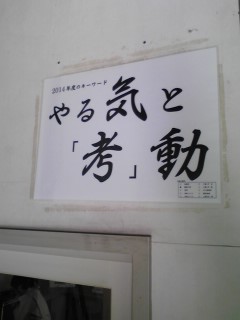 2014年度のキーワード
やる気と
「考」動